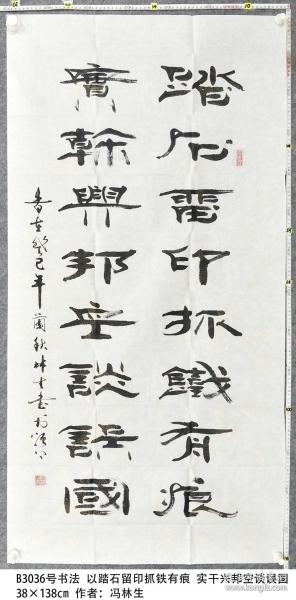 踏石留印抓鐵有痕
實幹興邦空談誤國
在癸巳年蘭秋林生書於
B3036号书法 以踏石留印抓铁有痕 实干兴邦空谈误国
38×138cm 作者：冯林生